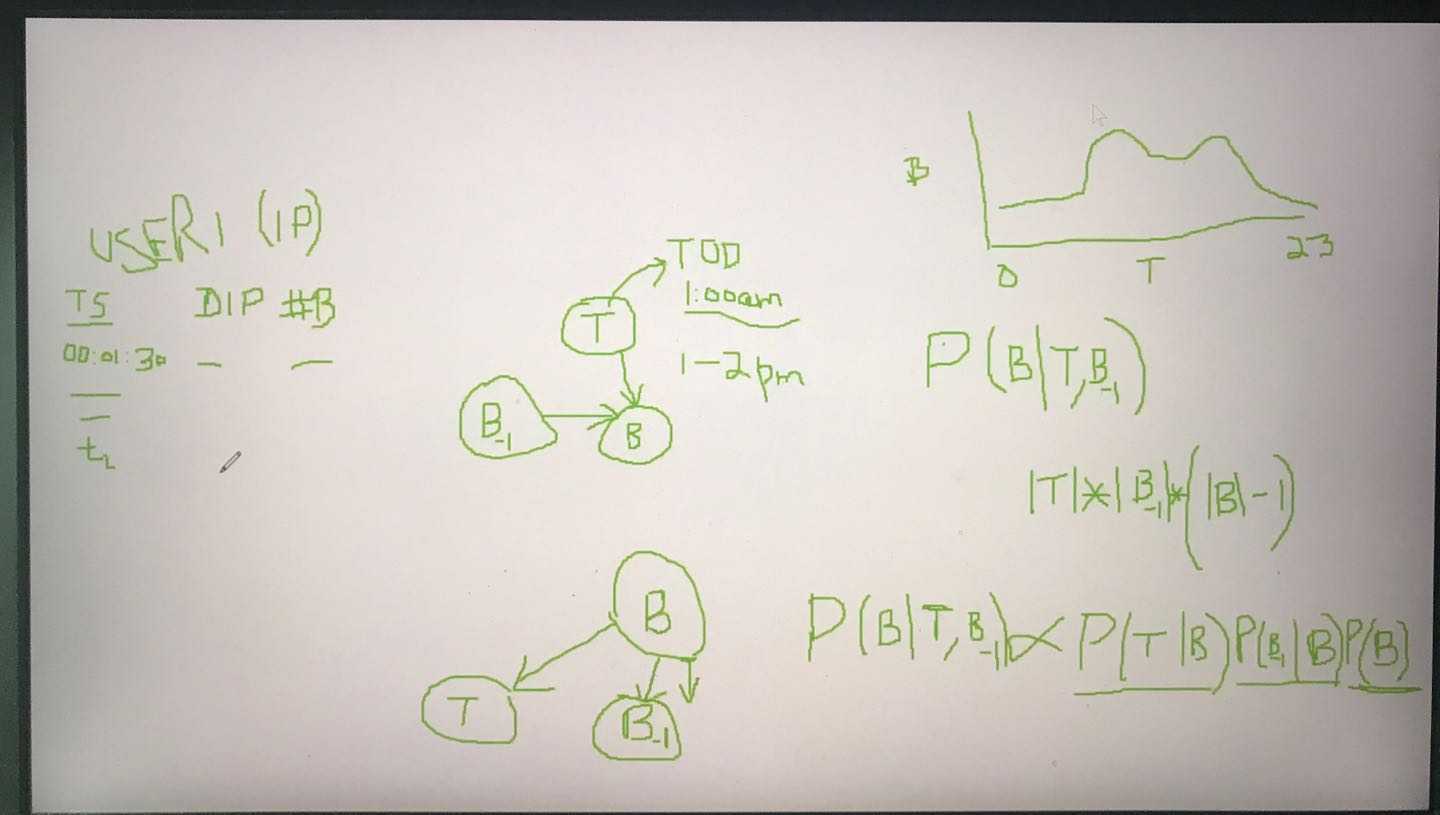 USER1 (IP)
TS DIP #B
00:01:30 — —
t₂
TOD
1:00am
1-2pm
T
B₋₁
B
B
T
B₋₁
B
0 T 23
P(B|T,B₋₁)
|T|*|B₋₁|*(|B|-1)
P(B|T,B₋₁)∝P(T|B)P(B₋₁|B)P(B)